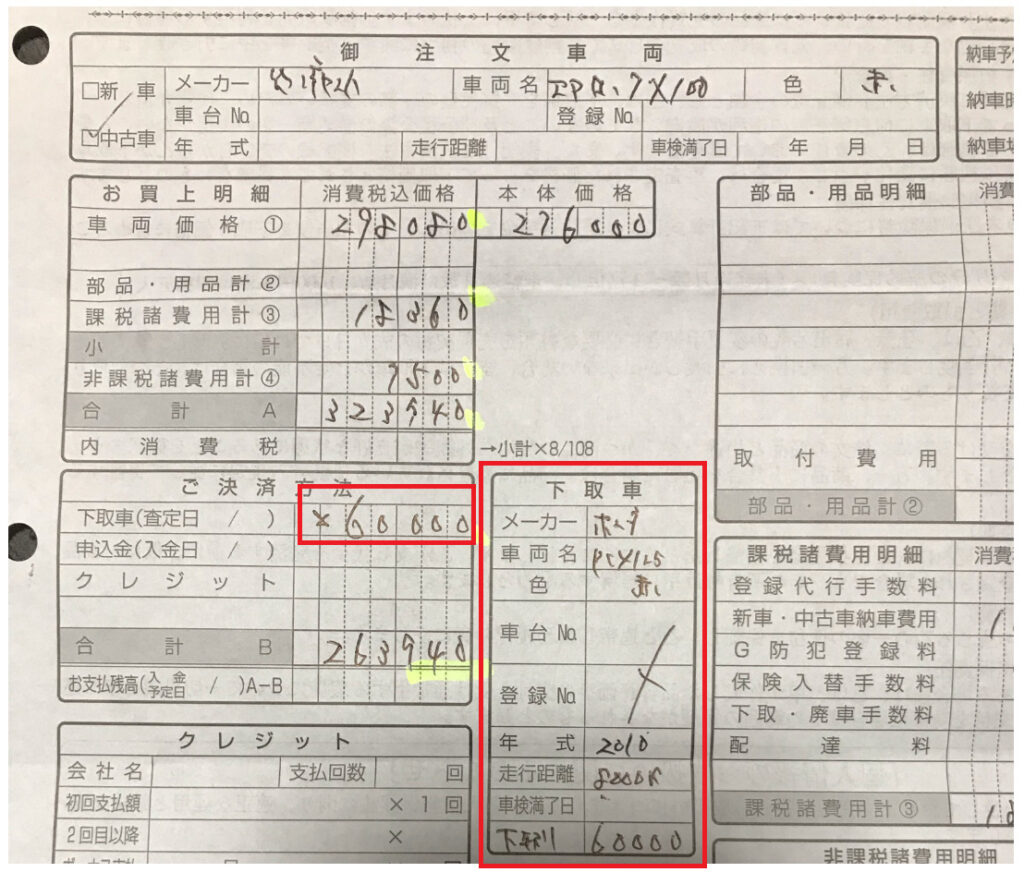 御注文車両
□新車 メーカー 車両名 色 赤
☑中古車 車台No. 登録No.
年式 走行距離 車検満了日 年 月 日
納車予
納車時
納車場
お買上明細 消費税込価格 本体価格
車両価格① 298080 276000
部品・用品計②
課税諸費用計③ 18360
小計
非課税諸費用計④ 7500
合計A 323940
内消費税 →小計×8/108
ご決済方法
下取車(査定日 / ) 60000
申込金(入金日 / )
クレジット
合計B 263940
お支払残高(入金予定日 / )A-B
クレジット
会社名 支払回数 回
初回支払額 ×1回
2回目以降 ×
下取車
メーカー ホンダ
車両名 PCX125
色 赤
車台No.
登録No.
年式 2010
走行距離 8000K
車検満了日
下取り 60000
部品・用品明細 消費
取付費用
部品・用品計②
課税諸費用明細 消費
登録代行手数料
新車・中古車納車費用 1
G防犯登録料
保険入替手数料
下取・廃車手数料
配達料
課税諸費用計③ 18
非課税諸費用明細